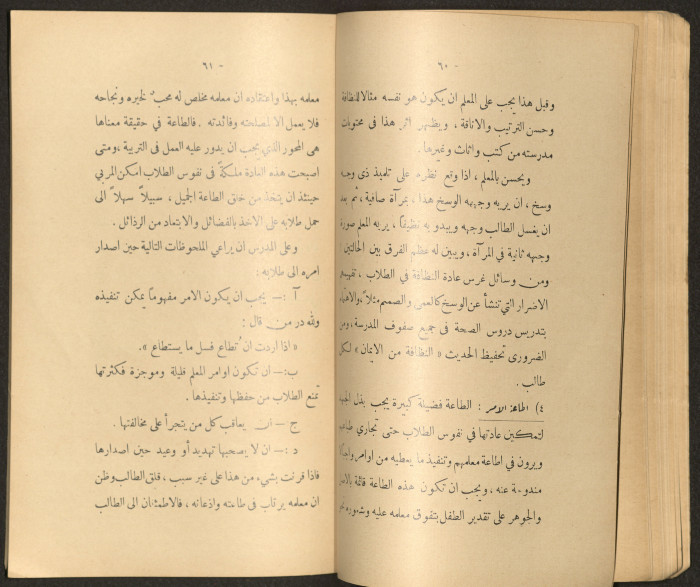 - ٦٠
وقبل هذا يجب على المعلم ان يكون هو نفسه مثالا للنظافة
وحسن الترتيب والاناقة ، ويظهر اثر هذا فى محتويات
مدرسته من كتب واثاث وغيرها .
ويحسن بالمعلم ، اذا وقع نظره على تلميذ ذى وجه
وسخ ، ان يريه وجهه الوسخ هذا ، بمرآة صافية ، ثم بعد
ان يغسل الطالب وجهه ويبدو به نظيفاً ، يريه المعلم صورة
وجهه ثانية فى المرآة ، ويبين له عظم الفرق بين الحالتين
ومن وسائل غرس عادة النظافة فى الطلاب ، تفهيمهم
الاضرار التي تنشأ عن الوسخ كالعمى والصمم مثلاً ، والاهتمام
بتدريس دروس الصحة فى جميع صفوف المدرسة ، ومن
الضرورى تحفيظ الحديث « النظافة من الايمان » لكل
طالب .
٤) اطاعة الامر : الطاعة فضيلة كبيرة يجب بذل الجهد
لتمكين عادتها فى نفوس الطلاب حتى تجاري طباعهم
ويرون في اطاعة معلمهم وتنفيذ ما يعطيه من اوامر واجباً لا
مندوحة عنه ، ويجب ان تكون هذه الطاعة قائمة بالامر
والجوهر على تقدير الطفل بتفوق معلمه عليه وشعوره نحو
- ٦١
معلمه بهذا واعتقاده ان معلمه مخلص له محب لخيره ونجاحه
فلا يعمل الا لمصلحته وفائدته . فالطاعة في حقيقة معناها
هى المحور الذي يجب ان يدور عليه العمل فى التربية ، ومتى
اصبحت هذه العادة ملكةً فى نفوس الطلاب امكن المربي
حينئذ ان يتخذ من خلق الطاعة الجميل ، سبيلاً سهلاً الى
حمل طلابه على الاخذ بالفضائل والابتعاد من الرذائل .
وعلى المدرس ان يراعي الملحوظات التالية حين اصدار
امره الى طلابه :
آ :ـ يجب ان يكون الامر مفهوماً يمكن تنفيذه
ولله در من قال :
« اذا اردت ان تُطاع فسل ما يستطاع » .
ب :ـ ان تكون اوامر المعلم قليلة وموجزة فكثرتها
تمنع الطلاب من حفظها وتنفيذها .
ج :ـ ان يعاقب كل من يتجرأ على مخالفتها .
د :ـ ان لا يصحبها تهديد أو وعيد حين اصدارها
فاذا قرنت بشيء من هذا على غير سبب ، قلق الطالب وظن
ان معلمه يرتاب فى طاعته واذعانه ، فالاطمئنان الى الطالب